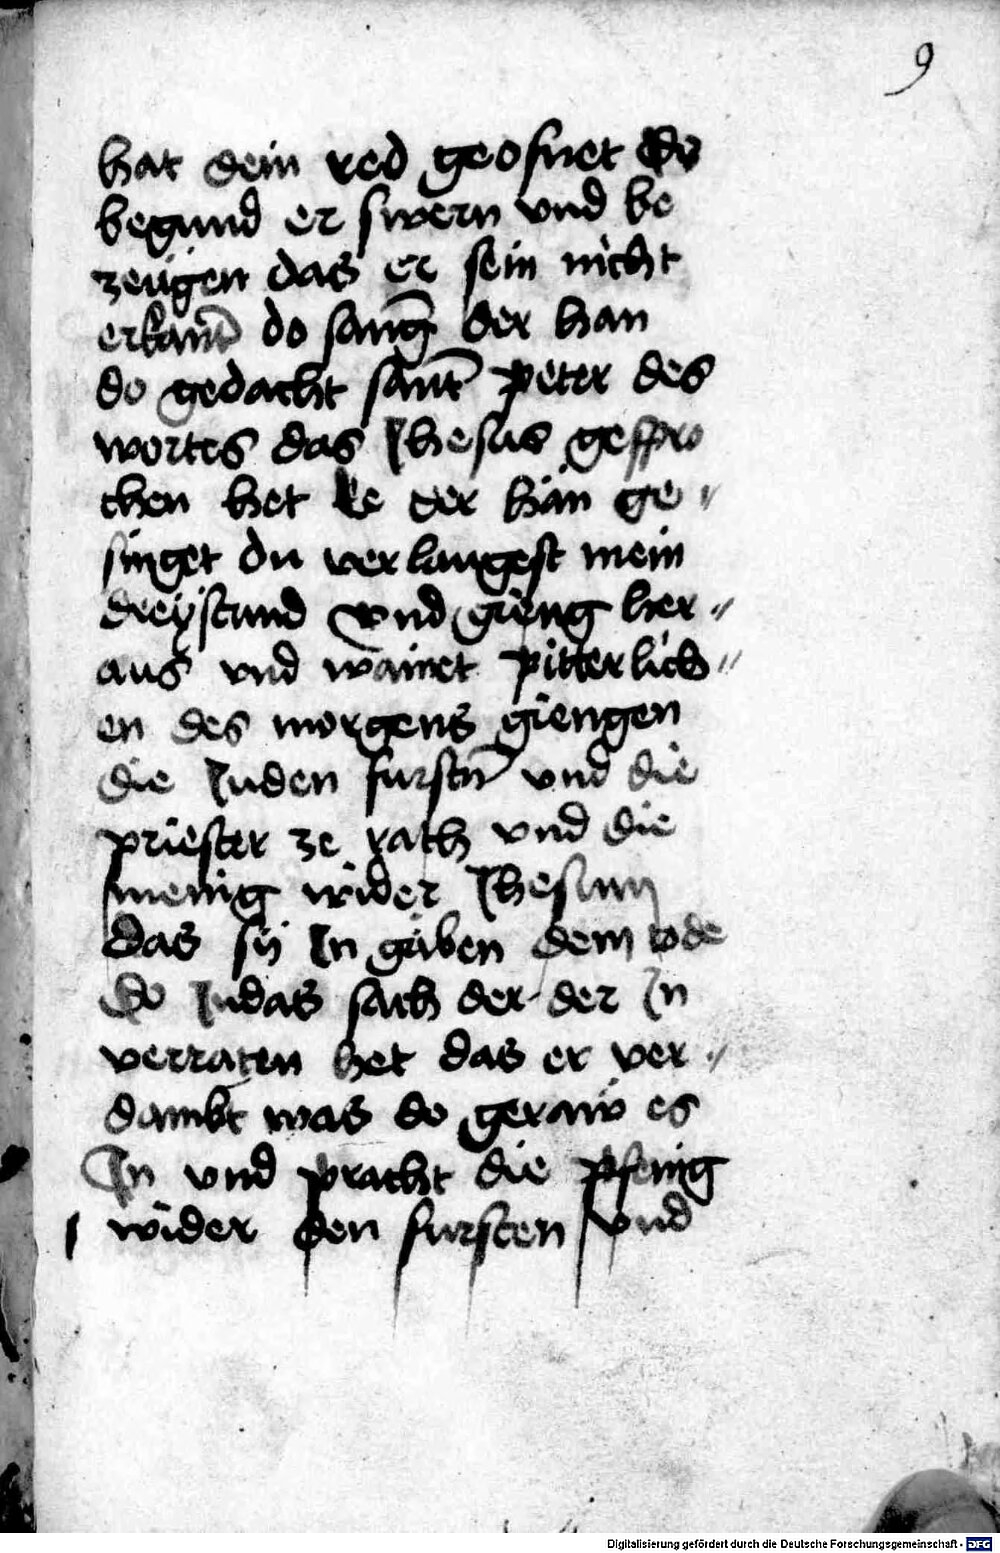 9
hat dein red geofnet Do
begund er swern vnd be
zeugen das er sein nicht
erkant do sang der han
do gedacht sant peter des
wortes das Jhesus gespro
chen het Ee der han ge〃
singet du verlaugest mein
dreystund vnd gieng her〃
aus vnd wainet pitterlich〃
en des morgens giengen
die Juden furstn vnd die
priester ze rath vnd die
menig wider Jhesum
das sy In gäben dem tode
Do Judas sach der der In
verraten het das er ver〃
dambt was do geraw es
In vnd pracht die pfenig
wider den fursten vnd
Digitalisierung gefördert durch die Deutsche Forschungsgemeinschaft - DFG